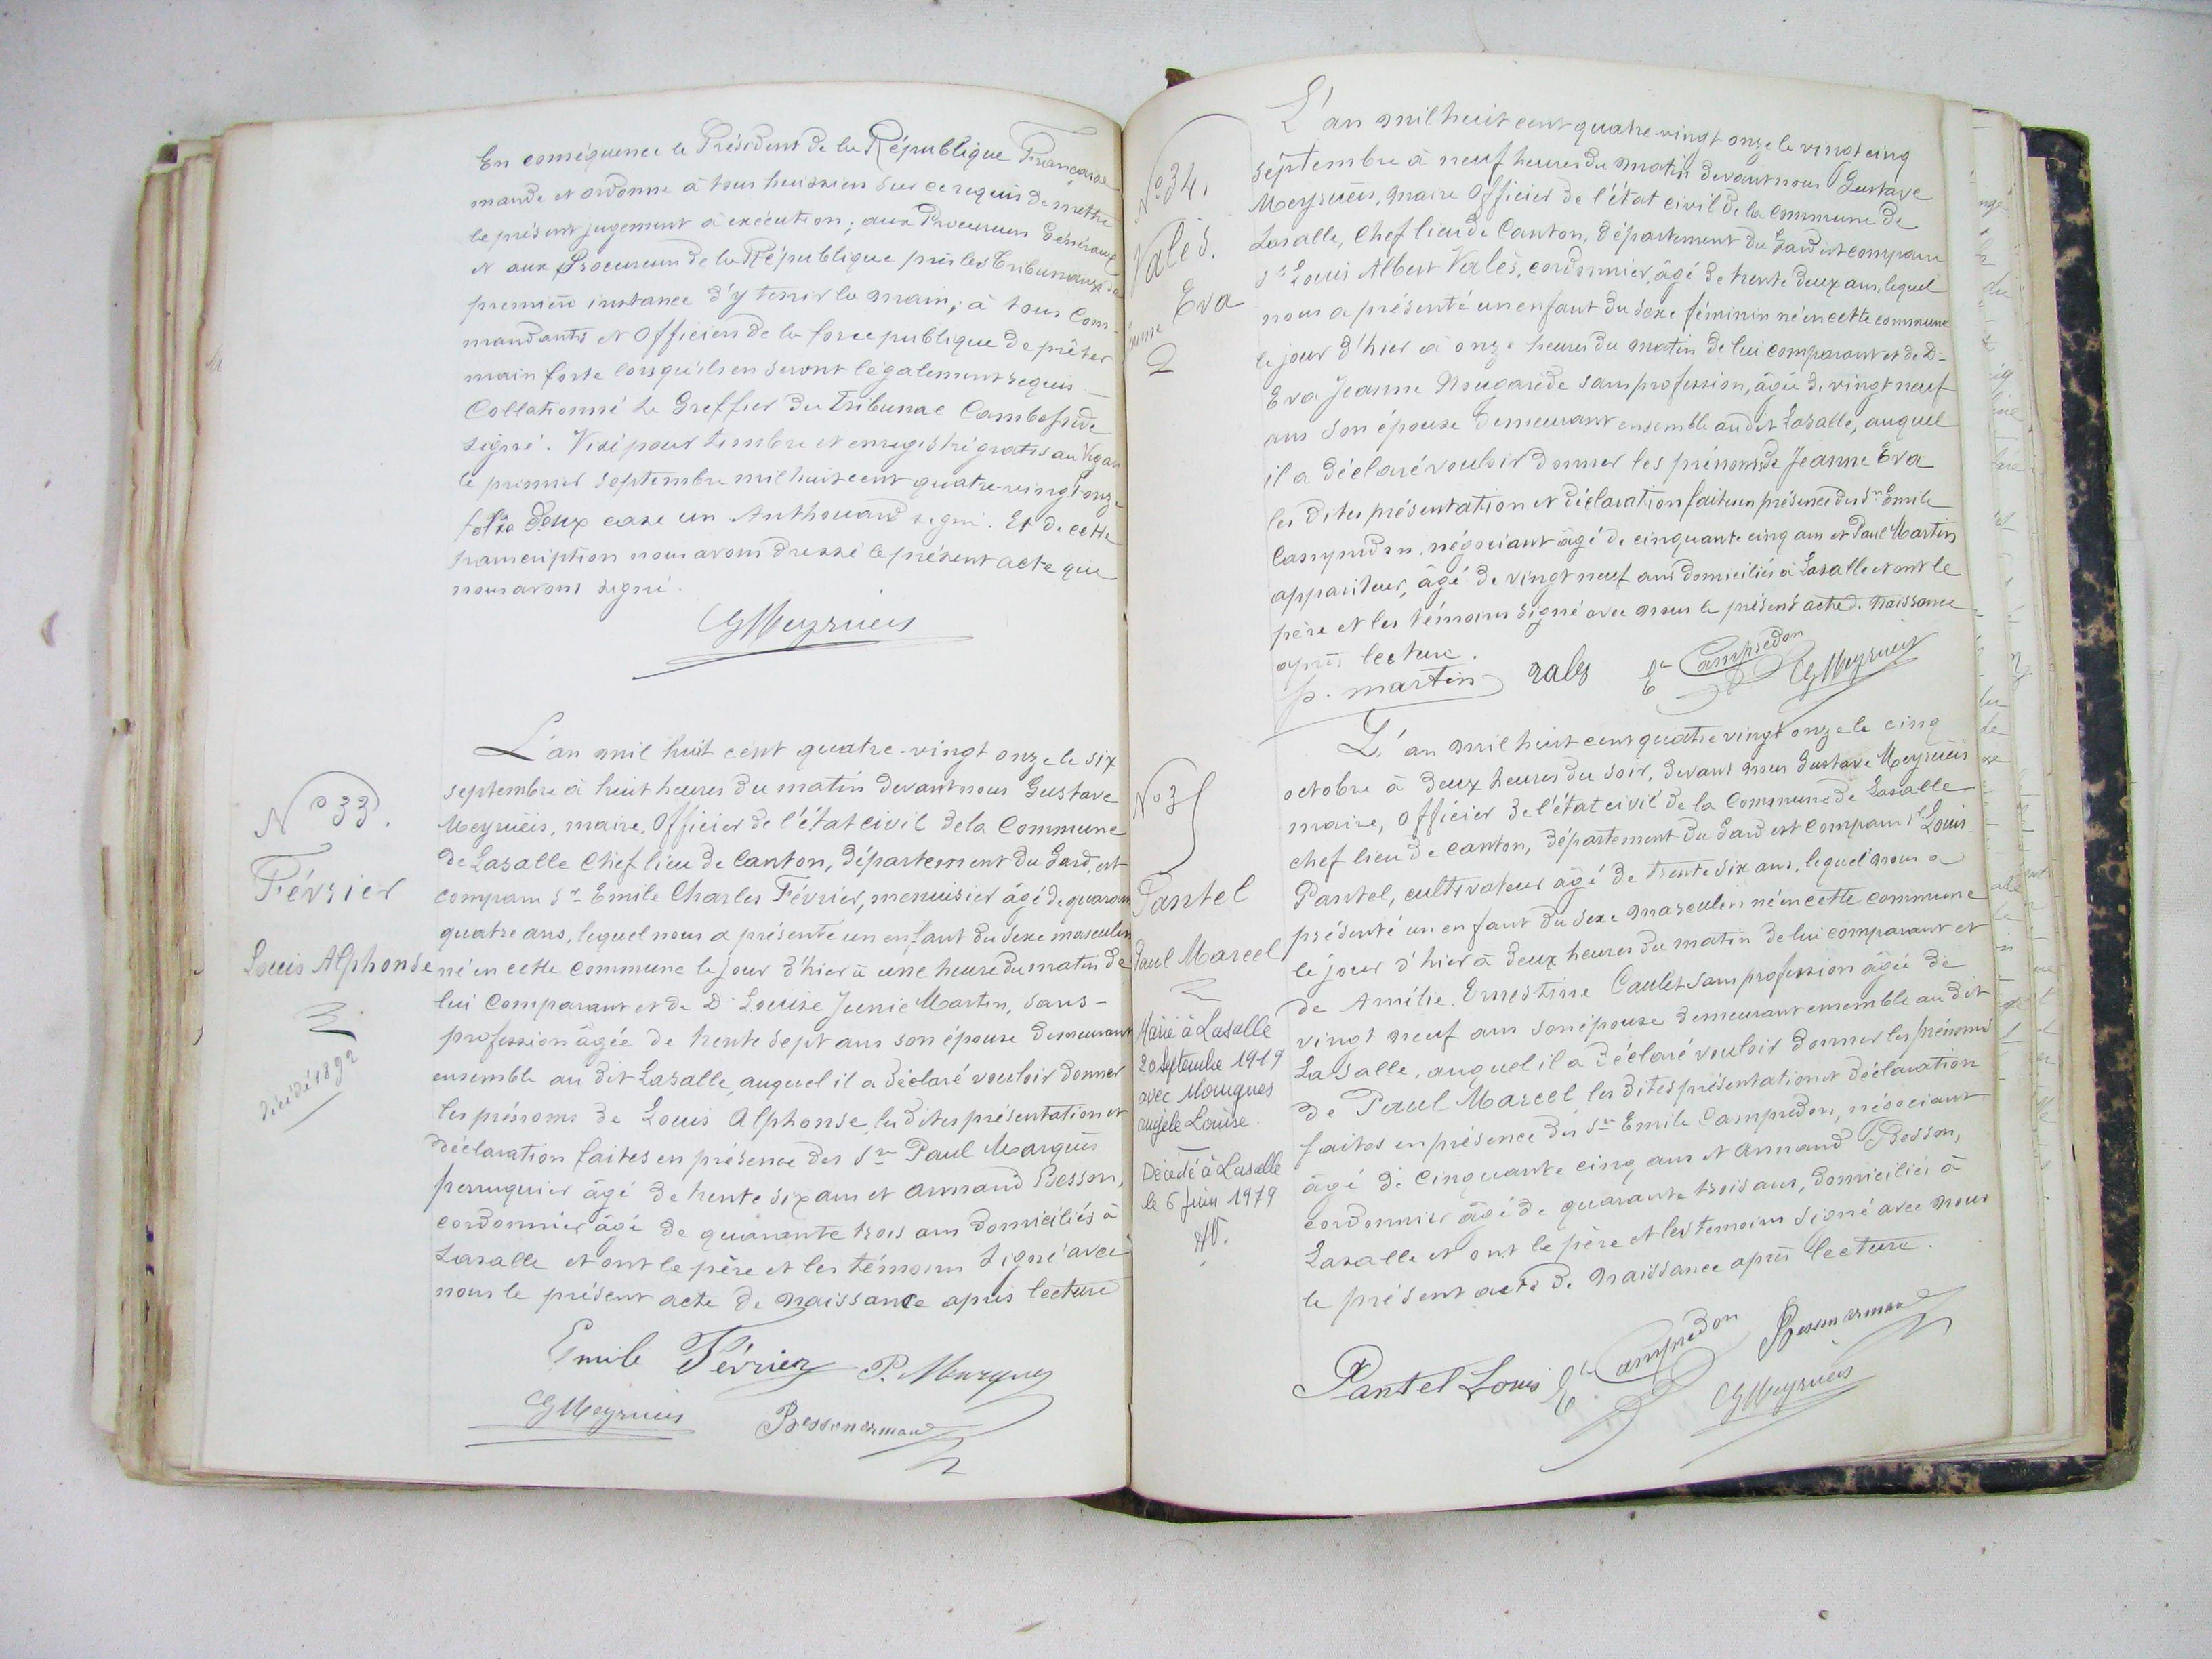 En conséquence le Président de la République Française
mande et ordonne à tous huissiers sur ce requis de mettre
le présent jugement à exécution; aux Procureurs Généraux
et aux Procureurs de la République près les Tribunaux de
première instance d'y tenir la main; à tous Com-
mandants et Officiers de la force publique de prêter
main forte lorsqu'ils en seront légalement requis.
Collationné Le Greffier du Tribunal Cambessède
signé. Visé pour timbre et enregistré gratis au Vigan
le premier Septembre mil huit cent quatre-vingt onze
folio deux case un Anthouard signé. Et de cette
transcription nous avons dressé le présent acte que
nous avons signé.
GMeyrueis
N° 33.
Février
Louis Alphonse
décédé 1892
L'an mil huit cent quatre-vingt onze le six
septembre à huit heures du matin devant nous Gustave
Meyrueis, maire, Officier de l'état civil de la Commune
de Lasalle Chef lieu de Canton, département du Gard, est
comparu Sr Emile Charles Février, menuisier âgé de quarante
quatre ans, lequel nous a présenté un enfant du sexe masculin
né en cette commune le jour d'hier à une heure du matin de
lui Comparant et de De Louise Junie Martin, sans-
profession âgée de trente sept ans son épouse demeurant
ensemble au dit Lasalle, auquel il a déclaré vouloir donner
les prénoms de Louis Alphonse, les dites présentation et
déclaration faites en présence des Srs Paul Marquès
perruquier âgé de trente six ans et Armand Besson,
cordonnier âgé de quarante trois ans domiciliés à
Lasalle et ont le père et les témoins signé avec
nous le présent acte de naissance après lecture
Emile Février P. Marques
GMeyrueis Besson armand
N° 34.
Valès.
Eva
L'an mil huit cent quatre-vingt onze le vingt cinq
septembre à neuf heures du matin devant nous Gustave
Meyrueis, maire Officier de l'état civil de la commune de
Lasalle, Chef lieu de Canton, département du Gard est comparu
Sr Louis Albert Valès, cordonnier, âgé de trente deux ans, lequel
nous a présenté un enfant du sexe féminin né en cette commune
le jour d'hier à onze heures du matin de lui comparant et de De
Eva Jeanne Nougarède sans profession, âgée de vingt neuf
ans son épouse demeurant ensemble au dit Lasalle, auquel
il a déclaré vouloir donner les prénoms de Jeanne Eva
les dites présentation et déclaration faites en présence des Srs Emile
Campredon, négociant âgé de cinquante cinq ans et Paul Martin
appariteur, âgé de vingt neuf ans domiciliés à Lasalle et ont le
père et les témoins signé avec nous le présent acte de naissance
après lecture.
p. martin Vales Ele Campredon GMeyrueis
N° 35
Pantel
Paul Marcel
Marié à Lasalle
20 septembre 1919
avec Mourgues
angèle Louise.
Décédé à Lasalle
le 6 juin 1979
L'an mil huit cent quatre vingt onze le cinq
octobre à deux heures du soir, devant nous Gustave Meyrueis
maire, Officier de l'état civil de la Commune de Lasalle
chef lieu de canton, département du Gard est comparu Sr Louis
Pantel, cultivateur âgé de trente six ans, lequel nous a
présenté un enfant du sexe masculin né en cette commune
le jour d'hier à deux heures du matin de lui comparant et
de Amélie Ernestine Caulet sans profession âgée de
vingt neuf ans son épouse demeurant ensemble au dit
Lasalle, auquel il a déclaré vouloir donner les prénoms
de Paul Marcel les dites présentation et déclaration
faites en présence des Srs Emile Campredon, négociant
âgé de cinquante cinq ans et Armand Besson,
cordonnier âgé de quarante trois ans, domiciliés à
Lasalle et ont le père et les témoins signé avec nous
le présent acte de naissance après lecture.
Pantel Louis Ele Campredon Besson armand
GMeyrueis